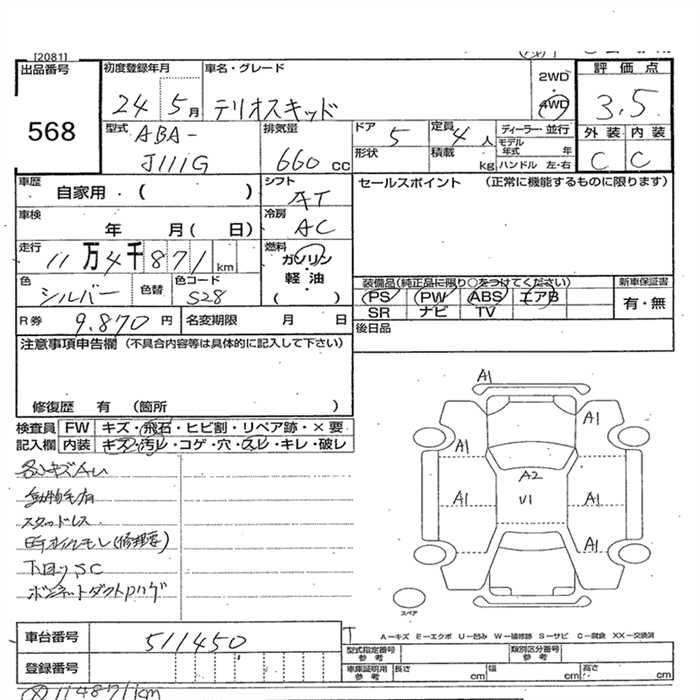 [2081]
出品番号
568
初度登録年月
24 5月
車名・グレード
テリオスキッド
2WD
4WD
評価点
3.5
型式
ABA-
J111G
排気量
660 cc
ドア
5
定員
4 人
形状
積載
kg
ディーラー・並行
モデル年式 年
ハンドル 左・右
外装 内装
C C
車歴
自家用・( )
シフト
AT
セールスポイント (正常に機能するものに限ります)
車検
年 月( 日)
冷房
AC
走行
11万4千871km
燃料
ガソリン
軽・油
( )
色
シルバー
色替
色コード
S28
装備品(純正品に限り○をつけてください)
PS PW ABS エアB
SR ナビ TV
新車保証書
有・無
R券
9.870円
名変期限 月 日
後日品
注意事項申告欄 (不具合内容等は具体的に記入して下さい)
修復歴 有 (箇所 )
検査員 FW キズ・飛石・ヒビ割・リペア跡・×要
記入欄 内装 キズ・汚レ・コゲ・穴・スレ・キレ・破レ
スタッドレス
下回りSC
A1
A1
A1
A2
A1
U1
A1
A1
スペア
A-キズ E-エクボ U-凹み W-補修跡 S-サビ C-腐食 XX-交換済
車台番号
511450
登録番号
型式指定番号
参考
類別区分番号
参考
車庫証明用
参考
長さ cm
幅 cm
高さ cm
114871km